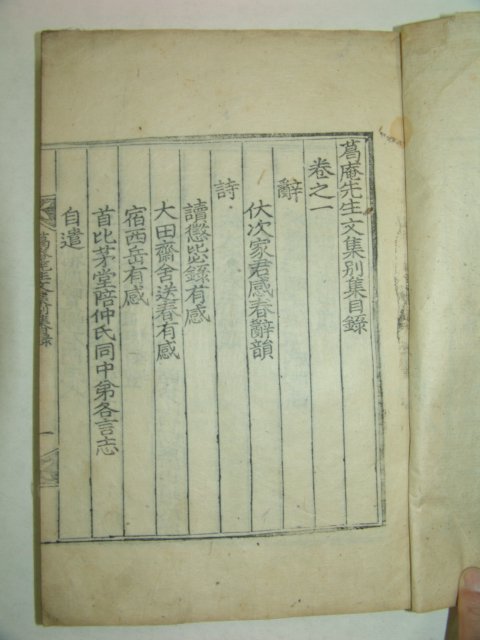 葛庵先生文集別集目錄
卷之一
辭
伏次家君感春辭韻
詩
讀懲毖錄有感
大田齋舍送春有感
宿西岳有感
首比茅堂陪仲氏同中弟各言志
自遣
葛庵先生文集別集目錄
一